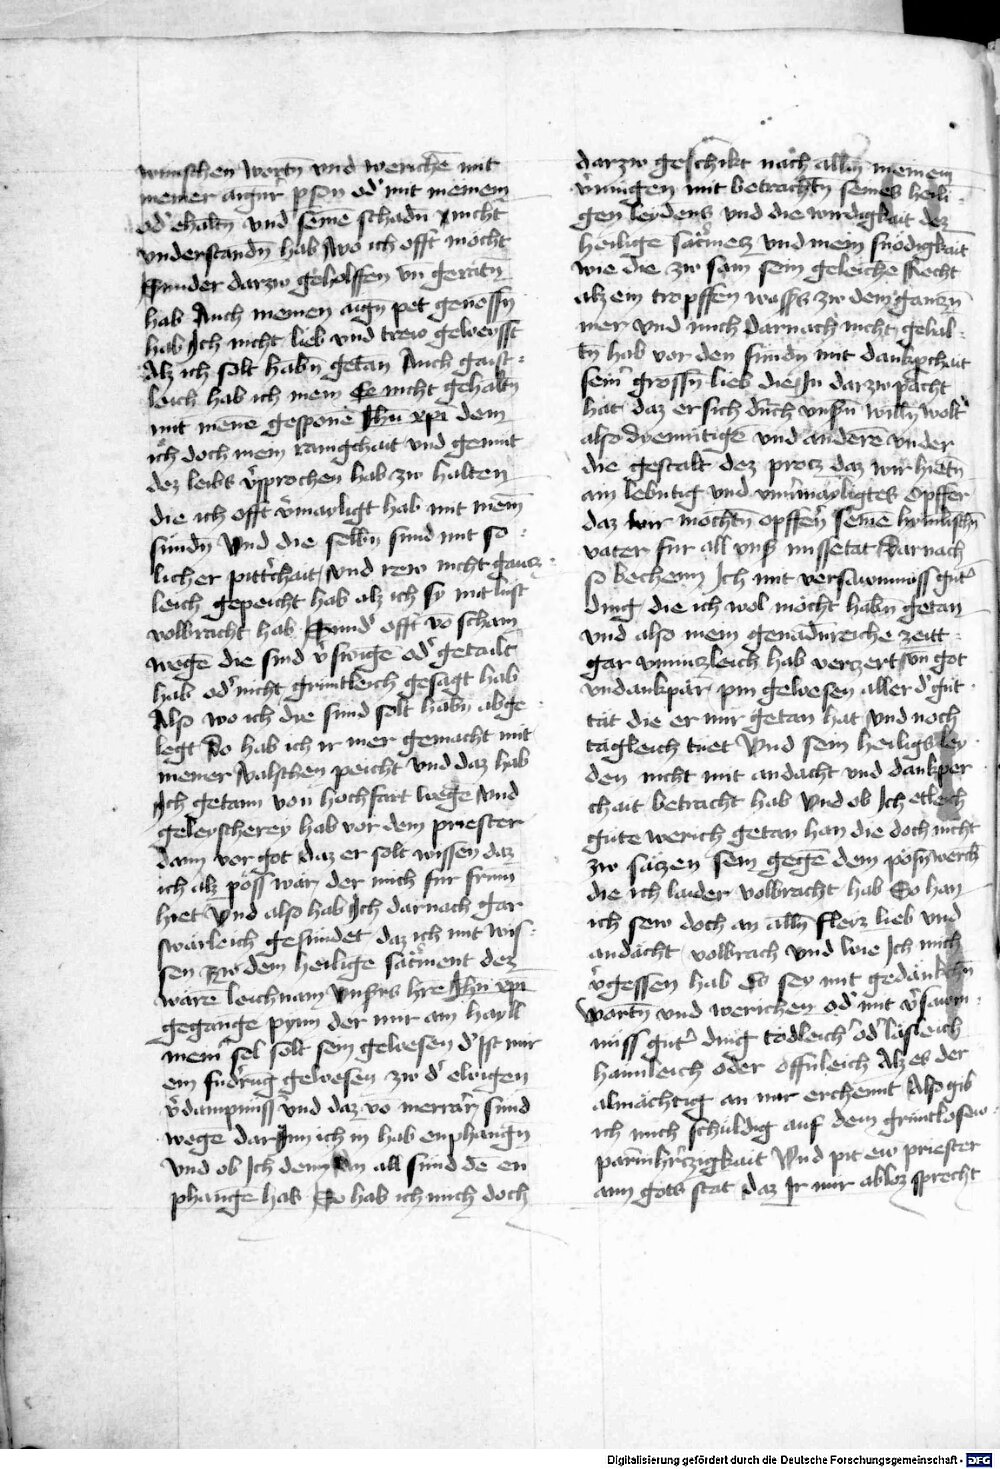 wunschen wortn̄ vnd werichē mit
meiner aigner pson od' mit meinem
od' ehaltn̄ vnd seine schadn̄ nicht
vnderstandn̄ hab wo ich offt mocht
Sunder darzw geholffen vn̄ geratn̄
hab Auch meinen aign̄ pet genossn̄
hab Ich nicht lieb vnd trew geweysst
Alz ich solt habn̄ getan Auch gaist-
leich hab ich mein Ee nicht gehaltn̄
mit meinē gesponē Ihū xpī dem
ich doch mein rainigchait vnd gemüt
dez leibs v'sprochen hab zw halten
die ich offt v'mayligt hab mit mein̄
sündn̄ Vnd die selbn̄ sund mit so-
licher pittr'chait vnd rew nicht gancz-
leich gepeicht hab alz ich sy mit lust
volbracht hab Sund' offt vō scham
wegē die sind v'swigē od' getailt
hab od' nicht grüntleich gesagt hab
Also wo ich die sund solt habn̄ abge-
legt Do hab ich ir mer gemacht mit
meiner valschen peicht vnd daz hab
Ich getann von hochfart wegē vnd
geleyscherey hab vor dem priester
dann vor got daz er solt wissen daz
ich alz pöss wär der mich für frum
hiet Vnd also hab Ich darnach gar
swärleich gesündet daz ich mit wis-
sen zw dem heilige sacr̄ment dez
warē leichnam vnsers hrē Ihū xpī
gegange pynn der mir am hayll
meinr' sel solt sein gewesen d' Ist mir
ein fudrūg gewesen zw d' ewigen
v'dampnuss vnd daz vō merrā'r sünd
wegē dar Inn ich in hab enphangn̄
vnd ob Ich denn an all sünd dē en
phangē hab So hab ich mich doch
darzw geschikt nach alln̄ meinem
v'mugen mit betrachtn̄ seines heili-
gen leydens vnd die wirdigkait dez
heilige sacr̄mez vnd mein snödigkait
wie die zw sam sein geleiche Recht
alz ein tropffen wasss zw dem ganczn̄
mer vnd mich darnach nicht gehal-
tn̄ hab vor den sündn̄ mit dankpchait
seinr' grossn̄ lieb die In darzw pracht
hat daz er sich durch vnsn̄ willn̄ wolt
also diemütigē vnd anderē vnder
die gestalt dez procz daz wir hietn̄
ain lebntig vnd vnu'mayligtes opffer
daz wir mochtn̄ opffern̄ seinē himlischn̄
vater fur all vnsr missetat Darnach
so bechenn Ich mit versawmnuss gut'
ding die ich wol möcht habn̄ getan
vnd also mein genādnreiche zeitt-
gar vnnuczleich hab verczert vn̄ got
vndankpär pin gewesen aller d' gut
tat die er mir getan hat vnd noch
tägleich tuet Vnd sein heiligs ley-
den nicht mit andacht vnd dankper
chait betracht hab Vnd ob Ich etleich
gute werich getan han die doch nicht
zw säczen sein gegē dem pösn̄ werch
die ich laider volbracht hab So han
ich sew doch an alln̄ fleiz lieb vnd
andächt volbrach vnd wie Ich mich
v'gessen hab Es sey mit gedankchn̄
wortn̄ vnd werichen od' mit v'sawm-
nüss gut' ding tödleich' od' läsleich
haimleich oder offnleich Alz es der
almächtig an mir erchennt Also gib
ich mich schuldig auf dem grüntlosen
parmhr'czigkait Vnd pit ew priester
ann gots stat daz Ir mir abloz sprecht
Digitalisierung gefördert durch die Deutsche Forschungsgemeinschaft - DFG